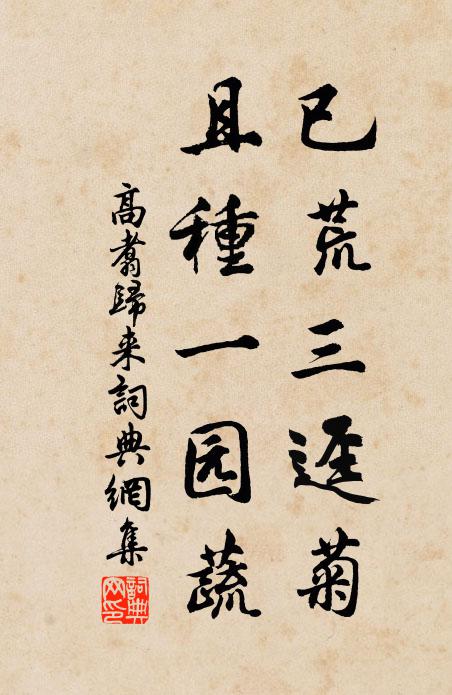 已荒三逕菊
且種一园蔬
高翥歸来詞典網集
詞典網印